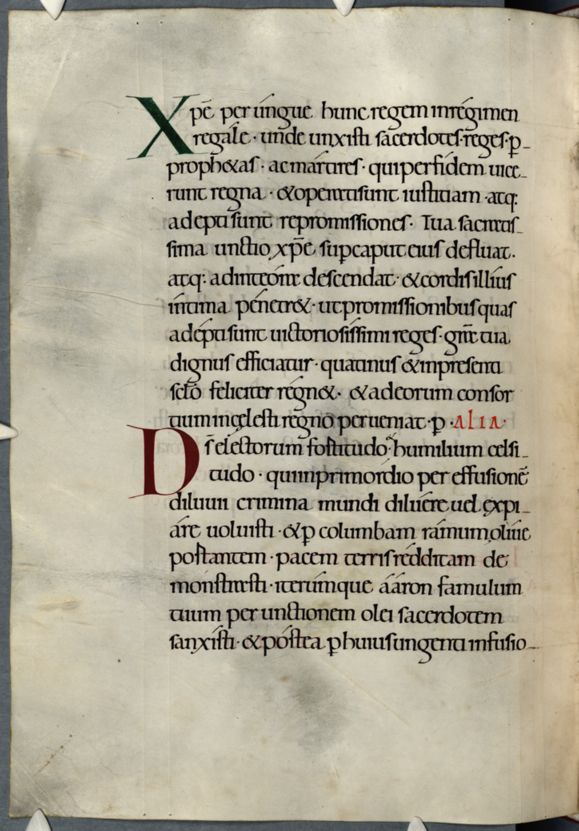 Xp̄e per úngue hunc regem inregimen
regále · unde unxisti sacerdotes · reges · p̱
prophetas · ac mártires · qui per fidem uice-
runt regna · & operati sunt iustitiam · atq:
adepti sunt repromissiones · Tua sacratis-
sima unctio xp̄e sup caput eius defluat ·
atq: ad interiora descendat · & cordis illius
íntima pénetr& · ut promissionibus quas
adépti sunt uictoriosissimi reges · gr̄a tua
dignus efficiatur · quatinus & in presenti
sclo feliciter régn& · & ad eorum consor
tium in cęlesti regno perueniat · p̱ · ALIA
Ds̄ electorum fortitudo · humilium celsi-
tudo · qui in primordio per effusionē
diluuii crimina mundi diluére uel expi-
áre uoluisti · & p̱ columbam rámum oliuę
portantem · pacem terris rédditam de
monstrasti · iterúmque ááron famulum
tuum per unctionem olei sacerdotem
sanxisti · & póstea p̱ huius ungenti infusio-